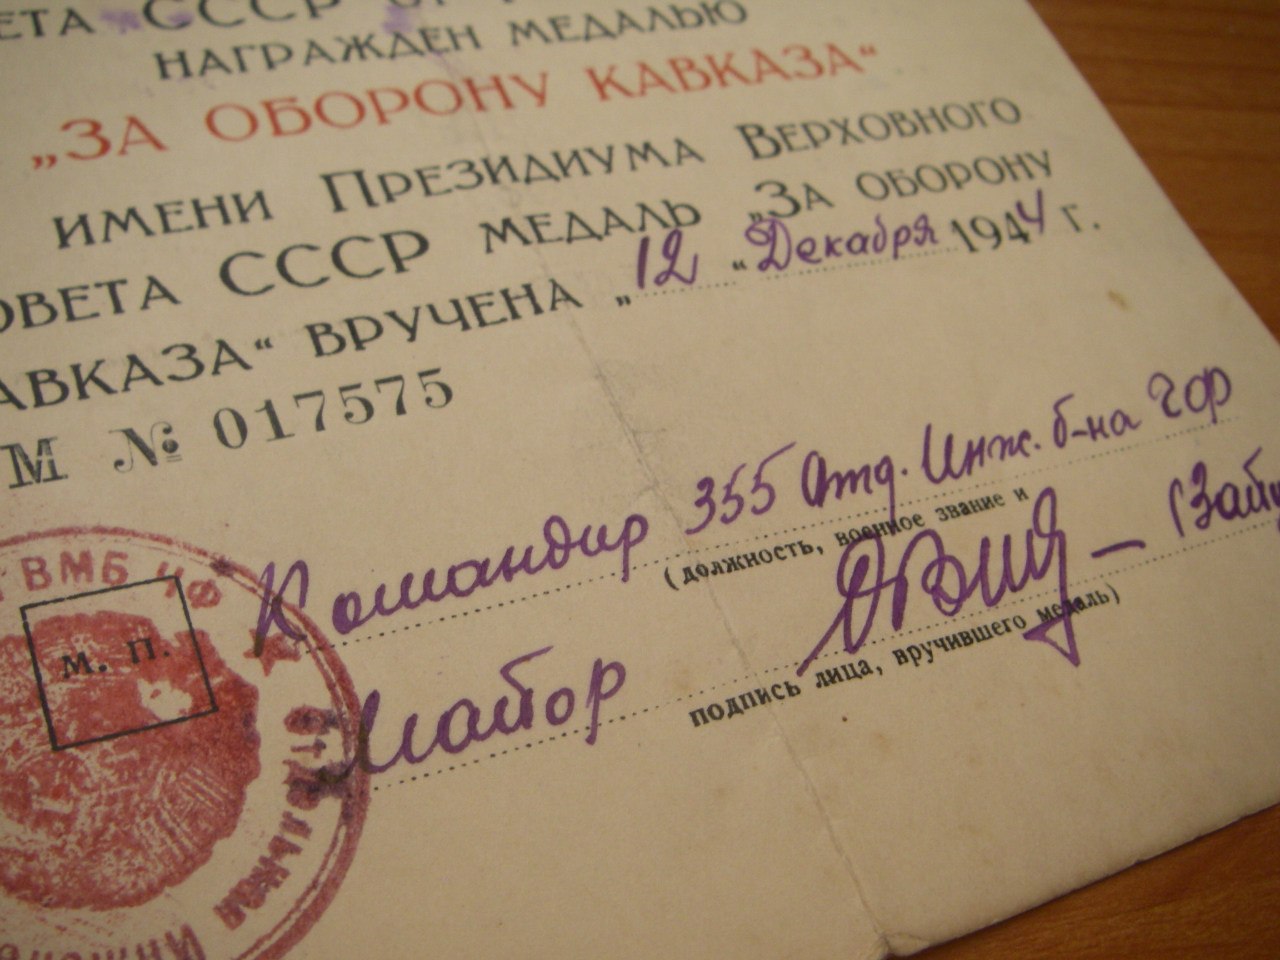 СССР
НАГРАЖДЕН МЕДАЛЬЮ
„ЗА ОБОРОНУ КАВКАЗА“
ИМЕНИ ПРЕЗИДИУМА ВЕРХОВНОГО
ОВЕТА СССР МЕДАЛЬ „ЗА ОБОРОНУ
АВКАЗА“ ВРУЧЕНА „12 “ Декабря 1944 г.
М № 017575
Командир 355 Отд. Инж. б-на ЧФ
(должность, военное звание и
Майор
подпись лица, вручившего медаль)
ВМБ ЧФ
М. П.